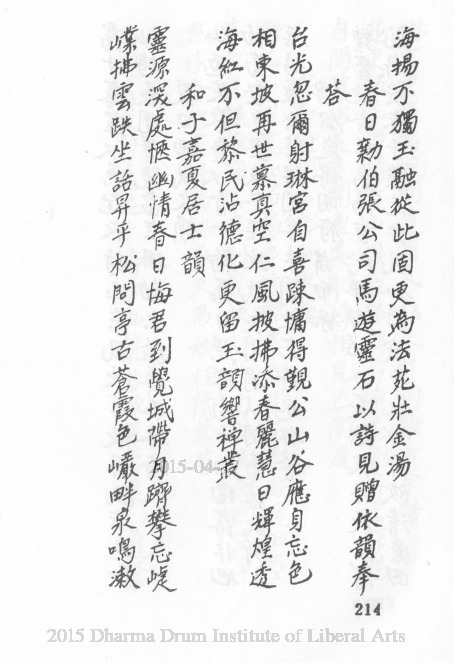 海揚不獨玉融從此固更為法苑壯金湯
春日勷伯張公司馬遊靈石以詩見贈依韻奉
荅
台光忽爾射琳宮自喜踈慵得覲公山谷應身忘色
相東坡再世慕真空仁風披拂添春麗慧日輝煌透
海紅不但黎民沾德化更留玉韻響禅叢
和子嘉夏居士韻
靈源深處愜幽情春日悔君到覺城帶月躋攀忘崎
嶫拂雲趺坐話昇平松問亭古蒼霞色巘畔泉鳴漱
214
2015-04-
2015 Dharma Drum Institute of Liberal Arts